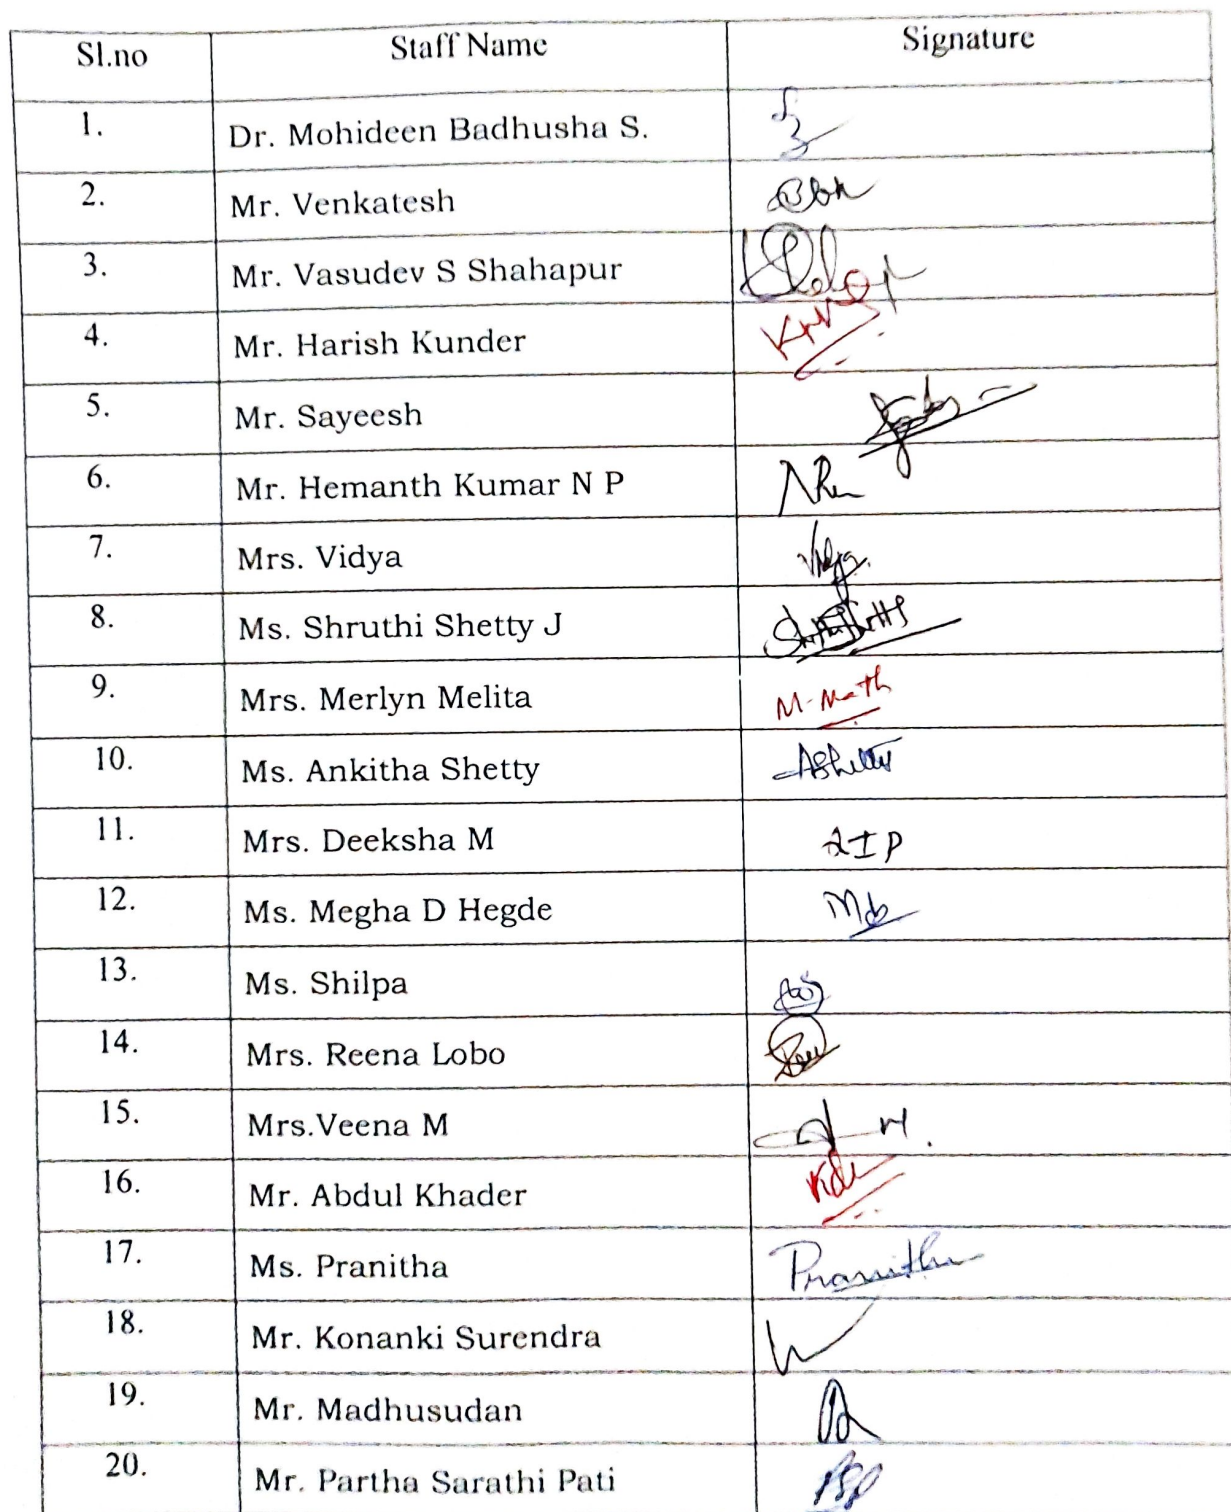 Sl.no Staff Name Signature
1. Dr. Mohideen Badhusha S.
2. Mr. Venkatesh
3. Mr. Vasudev S Shahapur
4. Mr. Harish Kunder
5. Mr. Sayeesh
6. Mr. Hemanth Kumar N P
7. Mrs. Vidya Vidya.
8. Ms. Shruthi Shetty J
9. Mrs. Merlyn Melita
10. Ms. Ankitha Shetty AShetty
11. Mrs. Deeksha M
12. Ms. Megha D Hegde
13. Ms. Shilpa
14. Mrs. Reena Lobo
15. Mrs.Veena M
16. Mr. Abdul Khader
17. Ms. Pranitha Pranitha
18. Mr. Konanki Surendra
19. Mr. Madhusudan
20. Mr. Partha Sarathi Pati